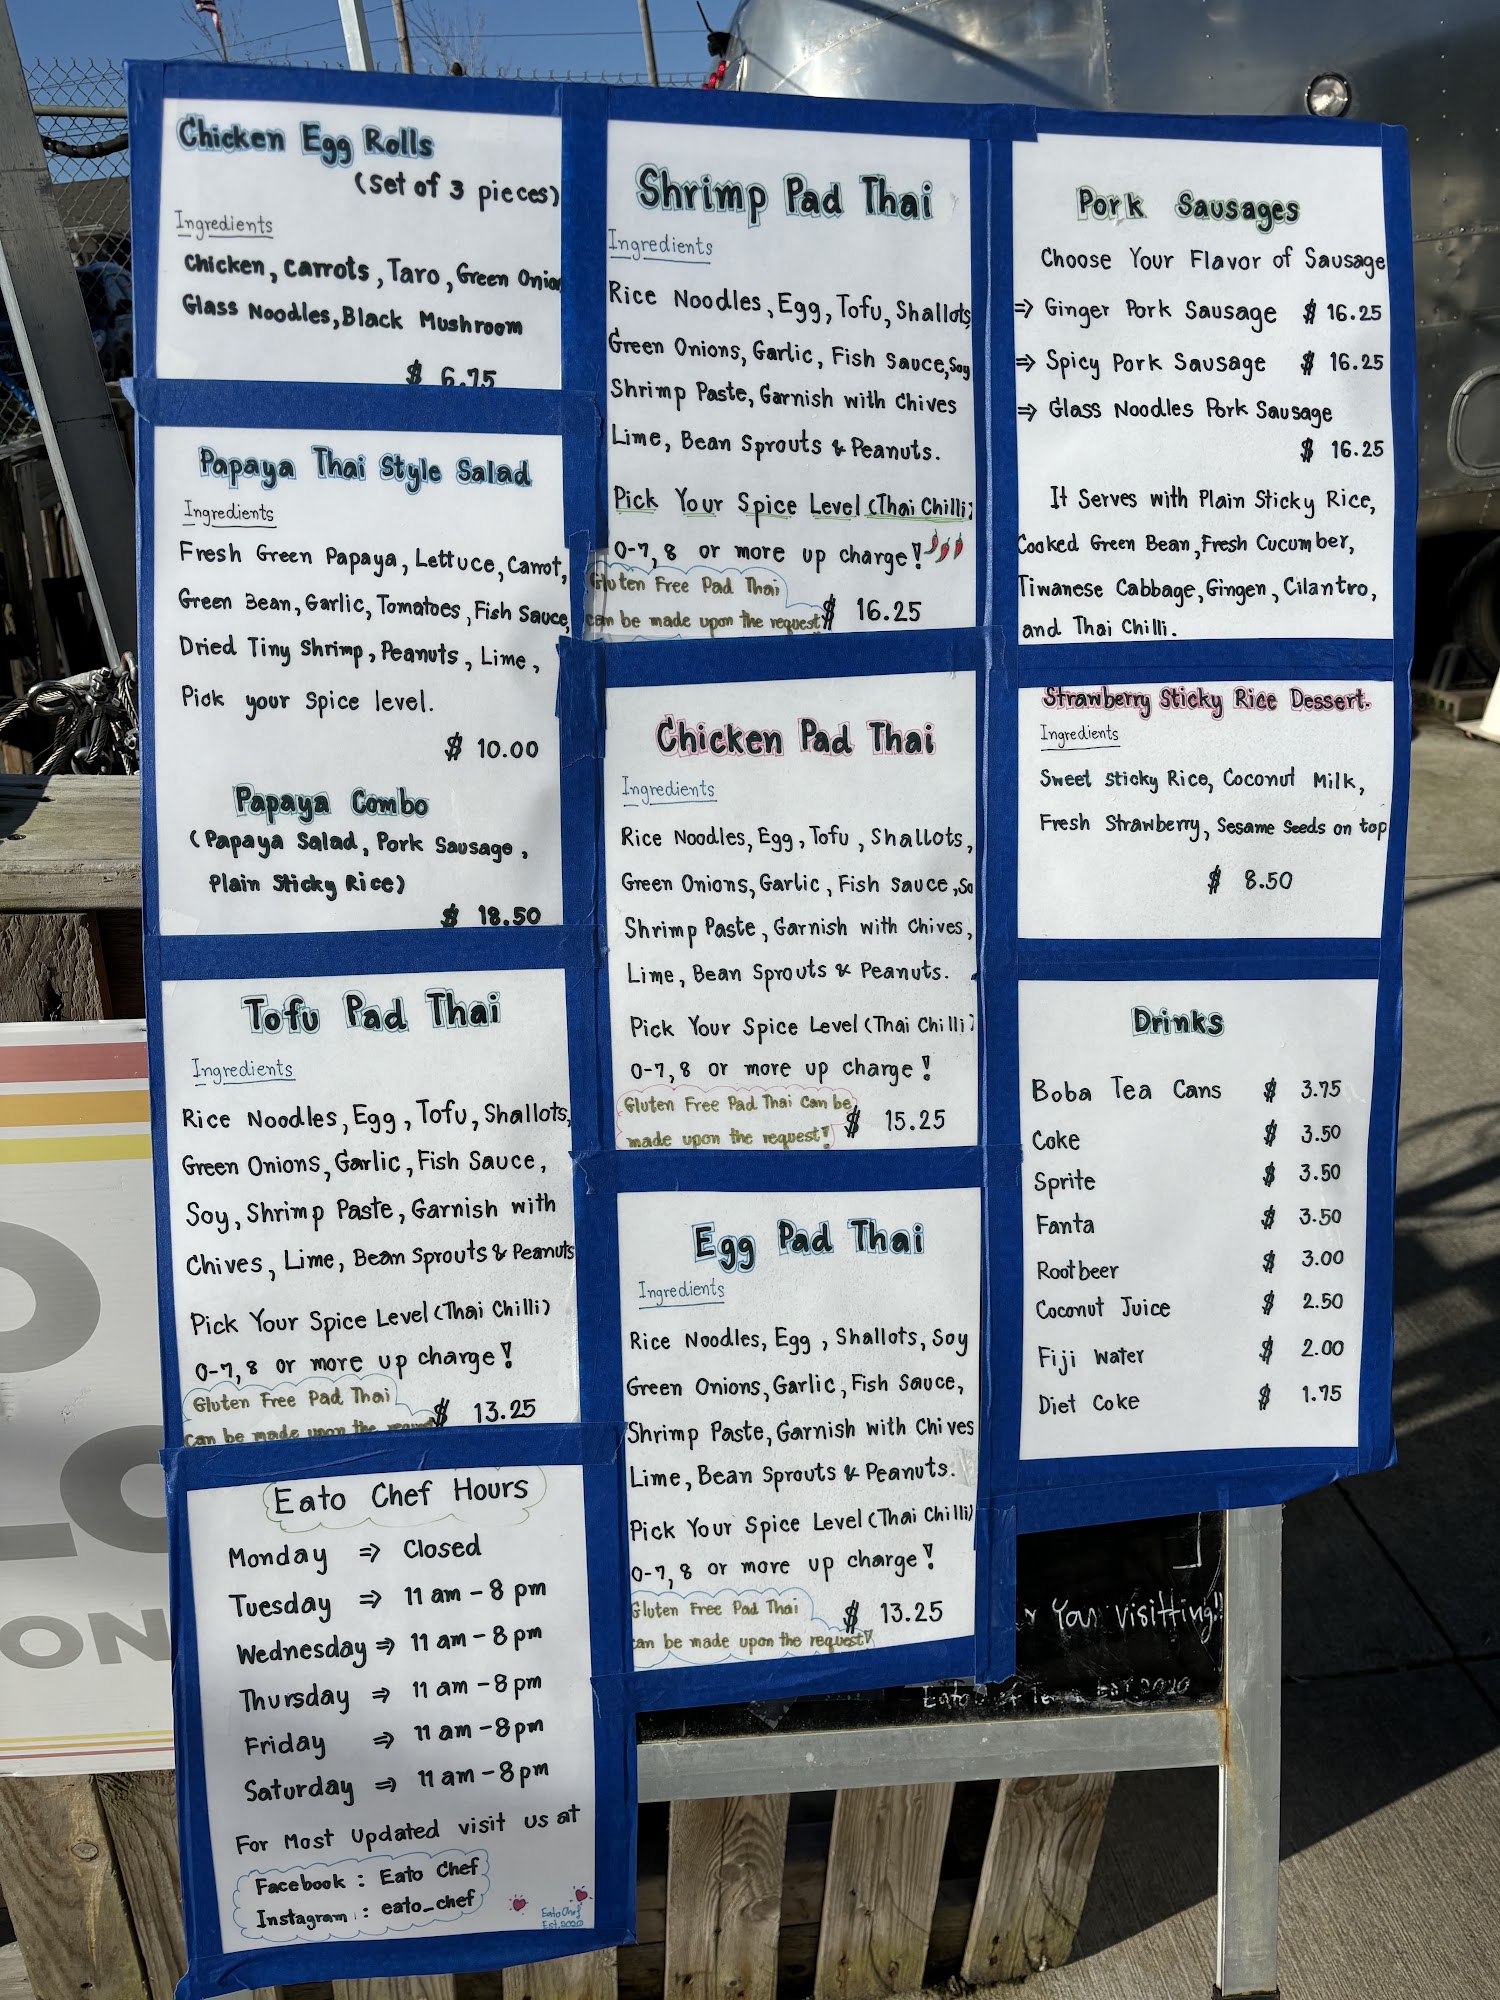 Chicken Egg Rolls
(Set of 3 pieces)
Ingredients
Chicken, Carrots, Taro, Green Onion
Glass Noodles, Black Mushroom
$ 6.75
Papaya Thai Style Salad
Ingredients
Fresh Green Papaya, Lettuce, Carrot,
Green Bean, Garlic, Tomatoes, Fish Sauce,
Dried Tiny Shrimp, Peanuts, Lime,
Pick your Spice level.
$ 10.00
Papaya Combo
(Papaya Salad, Pork Sausage,
Plain Sticky Rice)
$ 18.50
Tofu Pad Thai
Ingredients
Rice Noodles, Egg, Tofu, Shallots,
Green Onions, Garlic, Fish Sauce,
Soy, Shrimp Paste, Garnish with
Chives, Lime, Bean Sprouts & Peanuts
Pick Your Spice Level (Thai Chilli)
0-7, 8 or more up charge!
Gluten Free Pad Thai
can be made upon the request
$ 13.25
Eato Chef Hours
Monday ⇒ Closed
Tuesday ⇒ 11 am - 8 pm
Wednesday ⇒ 11 am - 8 pm
Thursday ⇒ 11 am - 8 pm
Friday ⇒ 11 am - 8 pm
Saturday ⇒ 11 am - 8 pm
For Most Updated visit us at
Facebook : Eato Chef
Instagram : eato_chef
Eato Chef
Est. 2020
Shrimp Pad Thai
Ingredients
Rice Noodles, Egg, Tofu, Shallots
Green Onions, Garlic, Fish Sauce, Soy
Shrimp Paste, Garnish with Chives
Lime, Bean Sprouts & Peanuts.
Pick Your Spice Level (Thai Chilli)
0-7, 8 or more up charge!
Gluten Free Pad Thai
can be made upon the request!
$ 16.25
Chicken Pad Thai
Ingredients
Rice Noodles, Egg, Tofu, Shallots,
Green Onions, Garlic, Fish Sauce, So
Shrimp Paste, Garnish with Chives,
Lime, Bean Sprouts & Peanuts.
Pick Your Spice Level (Thai Chilli)
0-7, 8 or more up charge!
Gluten Free Pad Thai Can be
made upon the request!
$ 15.25
Egg Pad Thai
Ingredients
Rice Noodles, Egg, Shallots, Soy
Green Onions, Garlic, Fish Sauce,
Shrimp Paste, Garnish with Chives
Lime, Bean Sprouts & Peanuts.
Pick Your Spice Level (Thai Chilli)
0-7, 8 or more up charge!
Gluten Free Pad Thai
can be made upon the request!
$ 13.25
Pork Sausages
Choose Your Flavor of Sausage
⇒ Ginger Pork Sausage $ 16.25
⇒ Spicy Pork Sausage $ 16.25
⇒ Glass Noodles Pork Sausage
$ 16.25
It Serves with Plain Sticky Rice,
Cooked Green Bean, Fresh Cucumber,
Tiwanese Cabbage, Gingen, Cilantro,
and Thai Chilli.
Strawberry Sticky Rice Dessert.
Ingredients
Sweet Sticky Rice, Coconut Milk,
Fresh Strawberry, Sesame Seeds on top
$ 8.50
Drinks
Boba Tea Cans $ 3.75
Coke $ 3.50
Sprite $ 3.50
Fanta $ 3.50
Rootbeer $ 3.00
Coconut Juice $ 2.50
Fiji Water $ 2.00
Diet Coke $ 1.75
You visitting!!
Eato EST 2020
ON